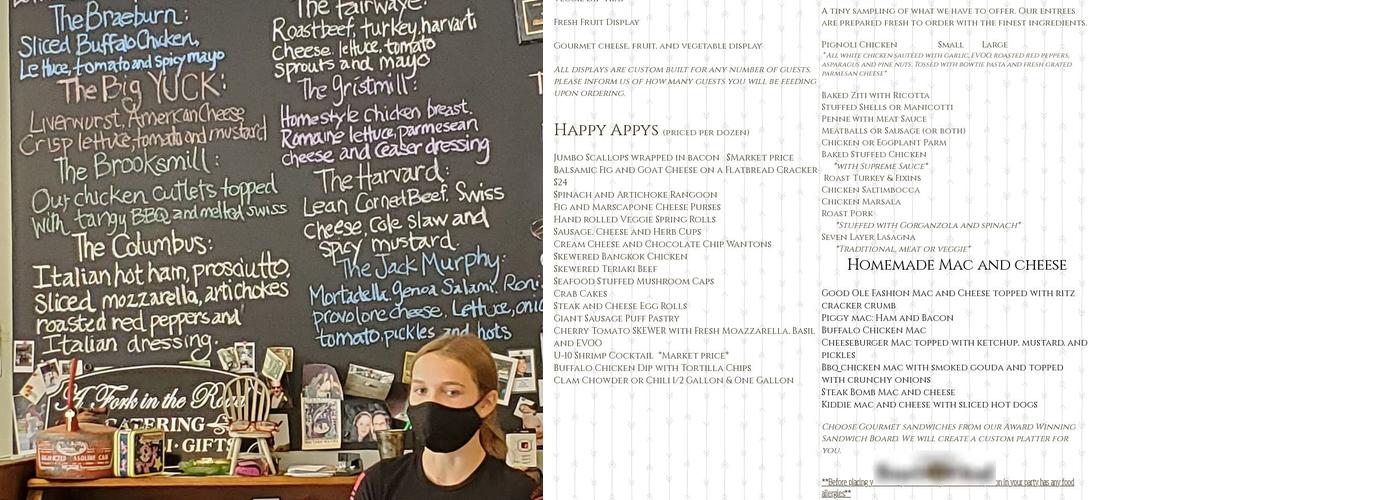 The Braeburn:
Sliced Buffalo Chicken,
Lettuce, tomato and spicy mayo
The Big YUCK:
Liverwurst, American Cheese,
Crisp lettuce, tomato and mustard
The Brooksmill:
Our chicken cutlets topped
with tangy BBQ and melted swiss
The Columbus:
Italian hot ham, prosquitto,
Sliced mozzarella, artichokes
roasted red peppers and
Italian dressing.
The Fairway:
Roastbeef, turkey, harvarti
Cheese, lettuce, tomato
sprouts and mayo
The Gristmill:
Homestyle chicken breast.
Romaine lettuce, parmesean
cheese and Ceaser dressing
The Harvard:
Lean Corned Beef, Swiss
cheese, Cole Slaw and
spicy mustard.
The Jack Murphy:
Mortadella, genoa Salami, Roni,
provolone cheese, Lettuce, onio
tomato, pickles and hots
A Fork in the Road
CATERING
GIFTS
VEGGIE DIP TRAY
FRESH FRUIT DISPLAY
GOURMET CHEESE, FRUIT, AND VEGETABLE DISPLAY
ALL DISPLAYS ARE CUSTOM BUILT FOR ANY NUMBER OF GUESTS.
PLEASE INFORM US OF HOW MANY GUESTS YOU WILL BE FEEDING
UPON ORDERING.
HAPPY APPYS (PRICED PER DOZEN)
JUMBO SCALLOPS WRAPPED IN BACON $MARKET PRICE
BALSAMIC FIG AND GOAT CHEESE ON A FLATBREAD CRACKER
$24
SPINACH AND ARTICHOKE RANGOON
FIG AND MARSCAPONE CHEESE PURSES
HAND ROLLED VEGGIE SPRING ROLLS
SAUSAGE, CHEESE AND HERB CUPS
CREAM CHEESE AND CHOCOLATE CHIP WANTONS
SKEWERED BANGKOK CHICKEN
SKEWERED TERIAKI BEEF
SEAFOOD STUFFED MUSHROOM CAPS
CRAB CAKES
STEAK AND CHEESE EGG ROLLS
GIANT SAUSAGE PUFF PASTRY
CHERRY TOMATO SKEWER WITH FRESH MOAZZARELLA, BASIL
AND EVOO
U-10 SHRIMP COCKTAIL *MARKET PRICE*
BUFFALO CHICKEN DIP WITH TORTILLA CHIPS
CLAM CHOWDER OR CHILI 1/2 GALLON & ONE GALLON
A TINY SAMPLING OF WHAT WE HAVE TO OFFER. OUR ENTREES
ARE PREPARED FRESH TO ORDER WITH THE FINEST INGREDIENTS.
PIGNOLI CHICKEN SMALL LARGE
*ALL WHITE CHICKEN SAUTÉED WITH GARLIC, EVOO, ROASTED RED PEPPERS,
ASPARAGUS AND PINE NUTS. TOSSED WITH BOWTIE PASTA AND FRESH GRATED
PARMESAN CHEESE*
BAKED ZITI WITH RICOTTA
STUFFED SHELLS OR MANICOTTI
PENNE WITH MEAT SAUCE
MEATBALLS OR SAUSAGE (OR BOTH)
CHICKEN OR EGGPLANT PARM
BAKED STUFFED CHICKEN
*WITH SUPREME SAUCE*
ROAST TURKEY & FIXINS
CHICKEN SALTIMBOCCA
CHICKEN MARSALA
ROAST PORK
*STUFFED WITH GORGANZOLA AND SPINACH*
SEVEN LAYER LASAGNA
*TRADITIONAL, MEAT OR VEGGIE*
HOMEMADE MAC AND CHEESE
GOOD OLE FASHION MAC AND CHEESE TOPPED WITH RITZ
CRACKER CRUMB
PIGGY MAC: HAM AND BACON
BUFFALO CHICKEN MAC
CHEESEBURGER MAC TOPPED WITH KETCHUP, MUSTARD, AND
PICKLES
BBQ CHICKEN MAC WITH SMOKED GOUDA AND TOPPED
WITH CRUNCHY ONIONS
STEAK BOMB MAC AND CHEESE
KIDDIE MAC AND CHEESE WITH SLICED HOT DOGS
CHOOSE GOURMET SANDWICHES FROM OUR AWARD WINNING
SANDWICH BOARD. WE WILL CREATE A CUSTOM PLATTER FOR
YOU.
**Before placing y on in your party has any food
allergies**